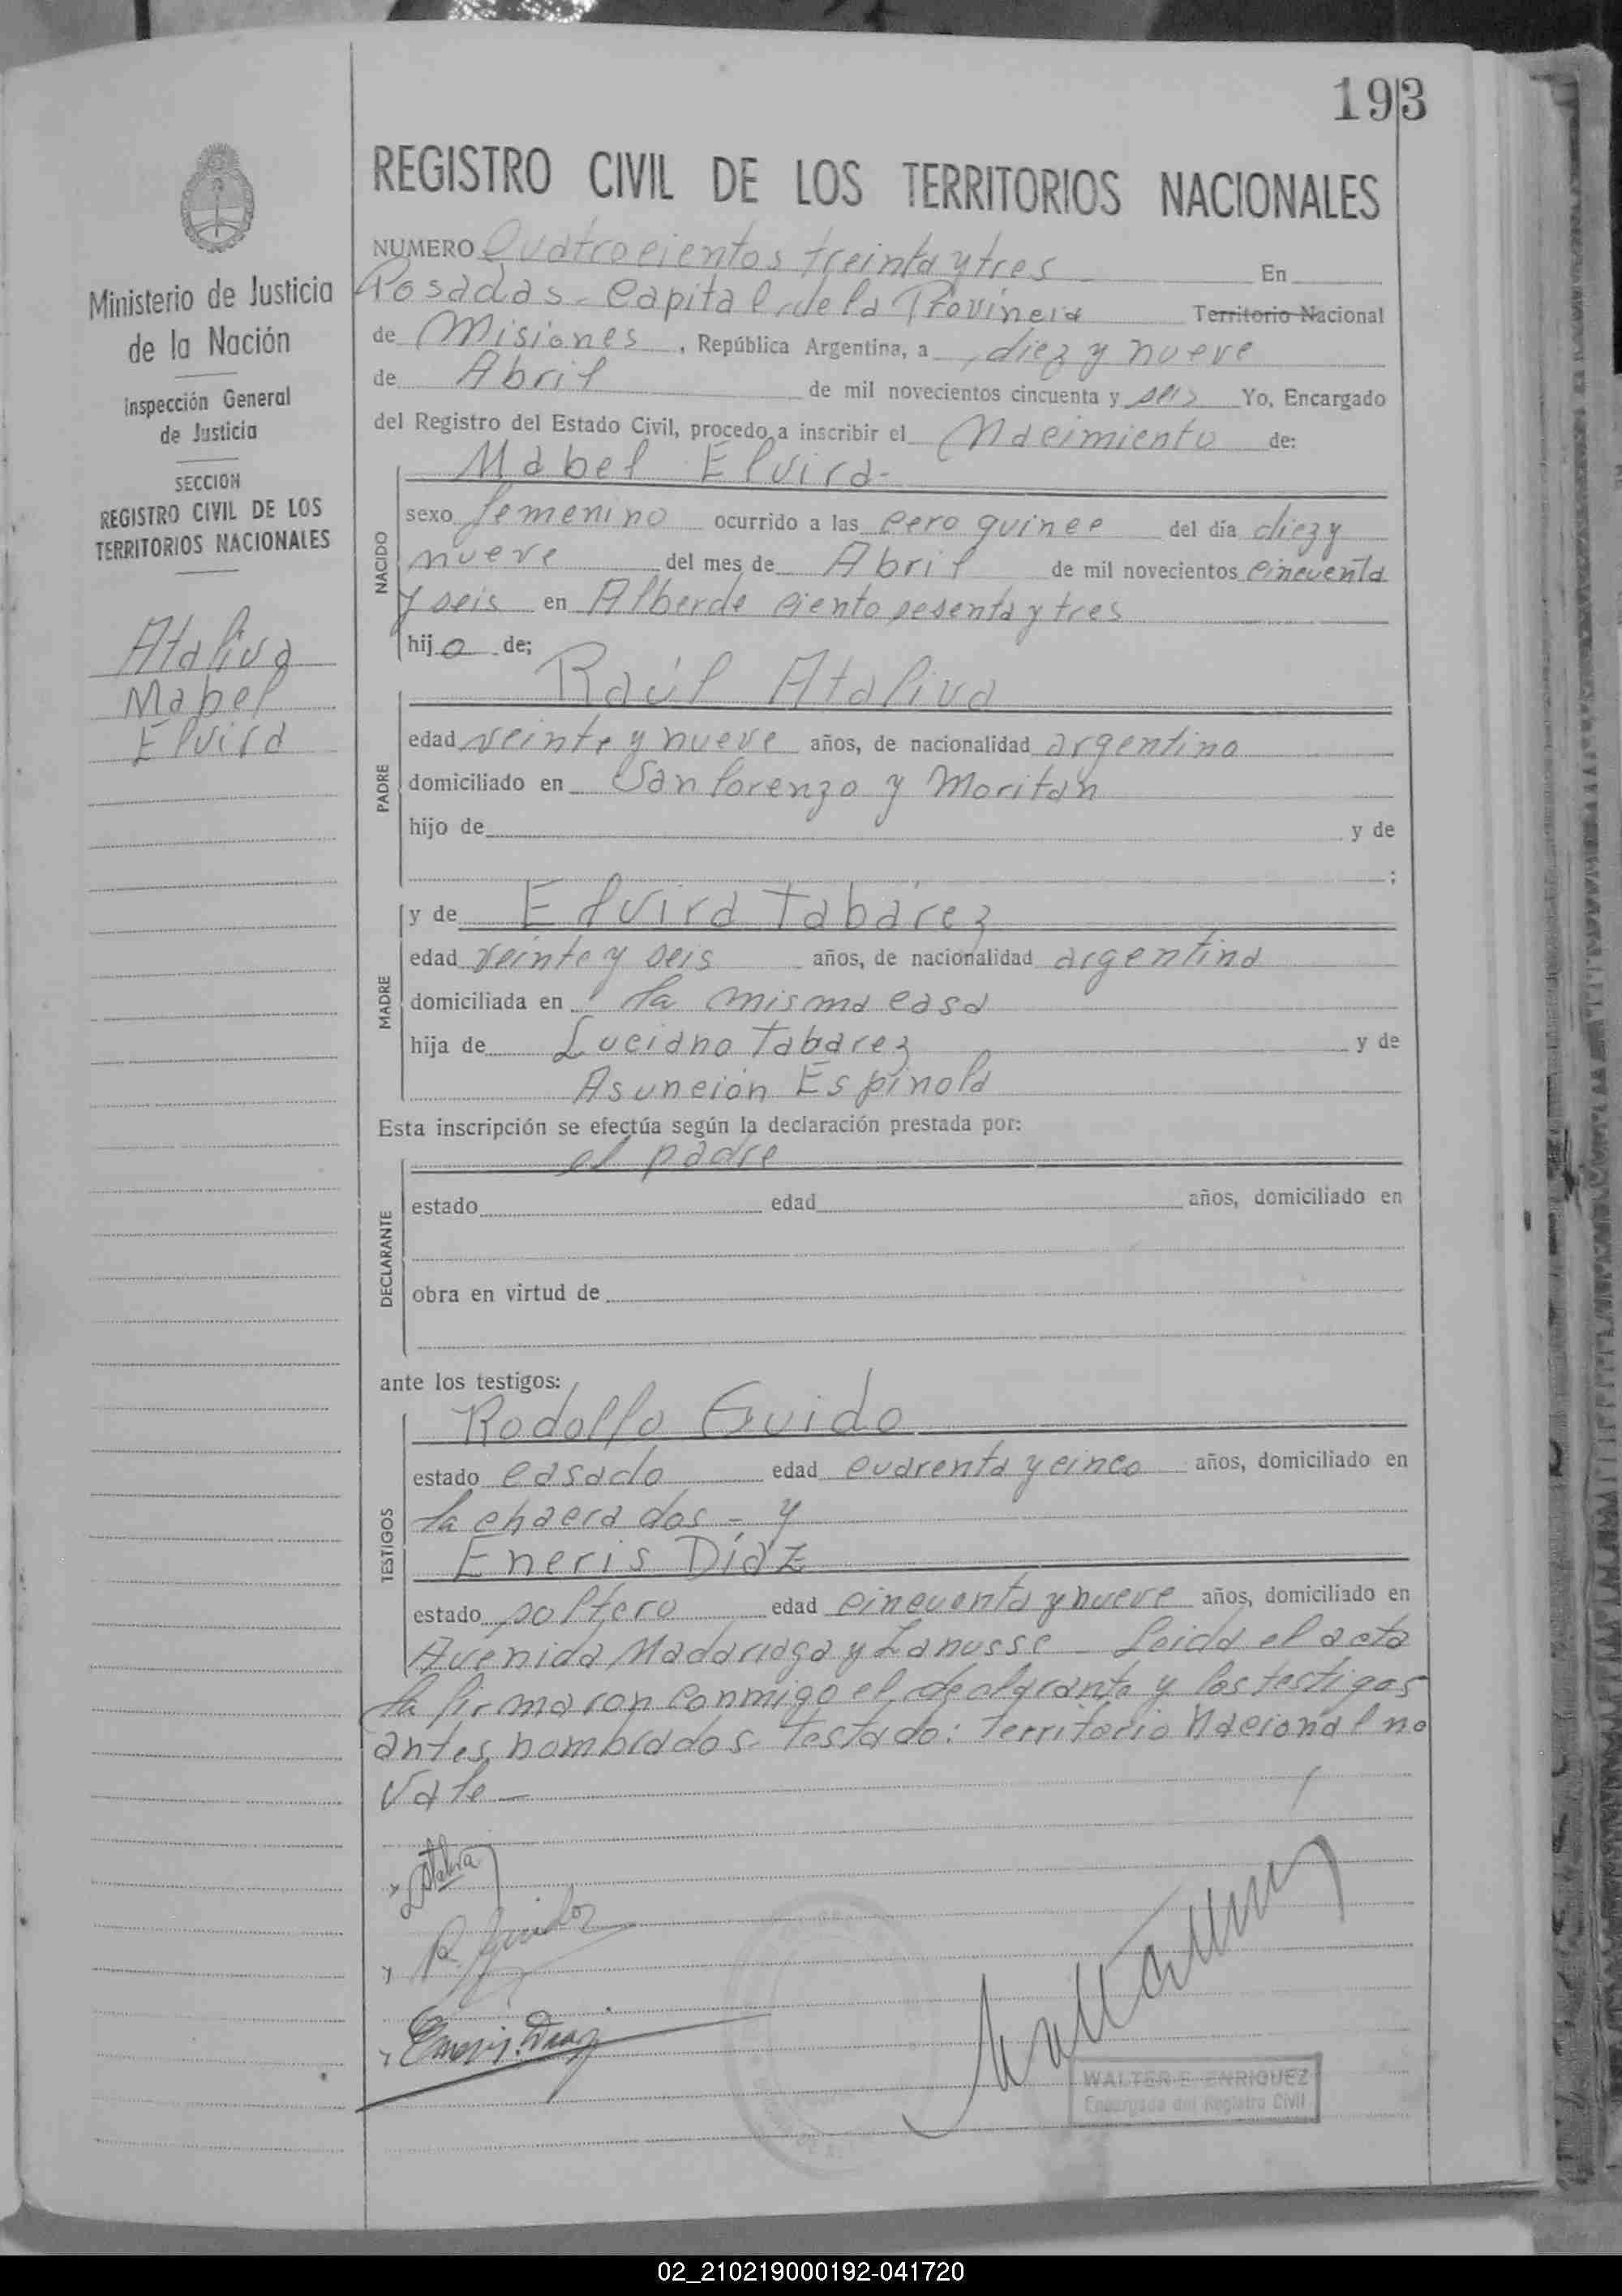 193
REGISTRO CIVIL DE LOS TERRITORIOS NACIONALES
Ministerio de Justicia
de la Nación
Inspección General
de Justicia
SECCION
REGISTRO CIVIL DE LOS
TERRITORIOS NACIONALES
Ataliva
Mabel
Elvira
NUMERO Cuatrocientos treinta y tres En
Posadas - Capital de la Provincia Territorio Nacional
de Misiones, República Argentina, a diez y nueve
de Abril de mil novecientos cincuenta y seis Yo, Encargado
del Registro del Estado Civil, procedo a inscribir el Nacimiento de:
Mabel Elvira-
NACIDO
sexo femenino ocurrido a las cero quince del día diez y
nueve del mes de Abril de mil novecientos cincuenta
y seis en Alberde ciento sesenta y tres
hija de;
Raúl Ataliva
PADRE
edad veinte y nueve años, de nacionalidad argentino
domiciliado en San Lorenzo y Moritan
hijo de y de
;
MADRE
y de Elvira Tabárez
edad veinte y seis años, de nacionalidad argentina
domiciliada en la misma casa
hija de Luciano Tabarez y de
Asunción Espínola
Esta inscripción se efectúa según la declaración prestada por:
el padre
DECLARANTE
estado edad años, domiciliado en
obra en virtud de
ante los testigos:
Rodolfo Guido
TESTIGOS
estado casado edad cuarenta y cinco años, domiciliado en
la chacra dos - y
Eneris Díaz
estado soltero edad cincuenta y nueve años, domiciliado en
Avenida Madariaga y Lanusse - Leida el acta
la firmaron conmigo el declarante y los testigos
antes nombrados - Testado: Territorio Nacional no
vale -
Ataliva
R. Guido
Eneris Diaz
WALTER E. ENRIQUEZ
Encargado del Registro Civil
02_210219000192-041720